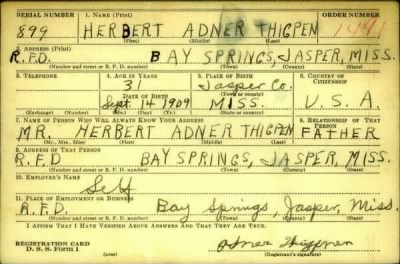 SERIAL NUMBER 1. NAME (Print) ORDER NUMBER
899 HERBERT ADNER THIGPEN 1441
(First) (Middle) (Last)
2. ADDRESS (Print)
R.F.D. BAY SPRINGS, JASPER, MISS.
(Number and street or R. F. D. number) (Town) (County) (State)
3. TELEPHONE 4. AGE IN YEARS 5. PLACE OF BIRTH 6. COUNTRY OF CITIZENSHIP
31 Jasper Co.
DATE OF BIRTH (Town or county)
Sept. 14 1909 MISS. U.S.A.
(Exchange) (Number) (Mo.) (Day) (Yr.) (State or country)
7. NAME OF PERSON WHO WILL ALWAYS KNOW YOUR ADDRESS 8. RELATIONSHIP OF THAT PERSON
MR. HERBERT ADNER THIGPEN FATHER
(Mr., Mrs., Miss) (First) (Middle) (Last)
9. ADDRESS OF THAT PERSON
R.F.D BAY SPRINGS, JASPER, MISS.
(Number and street or R. F. D. number) (Town) (County) (State)
10. EMPLOYER'S NAME
Self
11. PLACE OF EMPLOYMENT OR BUSINESS
R.F.D. Bay Springs, Jasper, Miss.
(Number and street or R. F. D. number) (Town) (County) (State)
I AFFIRM THAT I HAVE VERIFIED ABOVE ANSWERS AND THAT THEY ARE TRUE.
REGISTRATION CARD
D. S. S. Form 1 Adner Thigpen